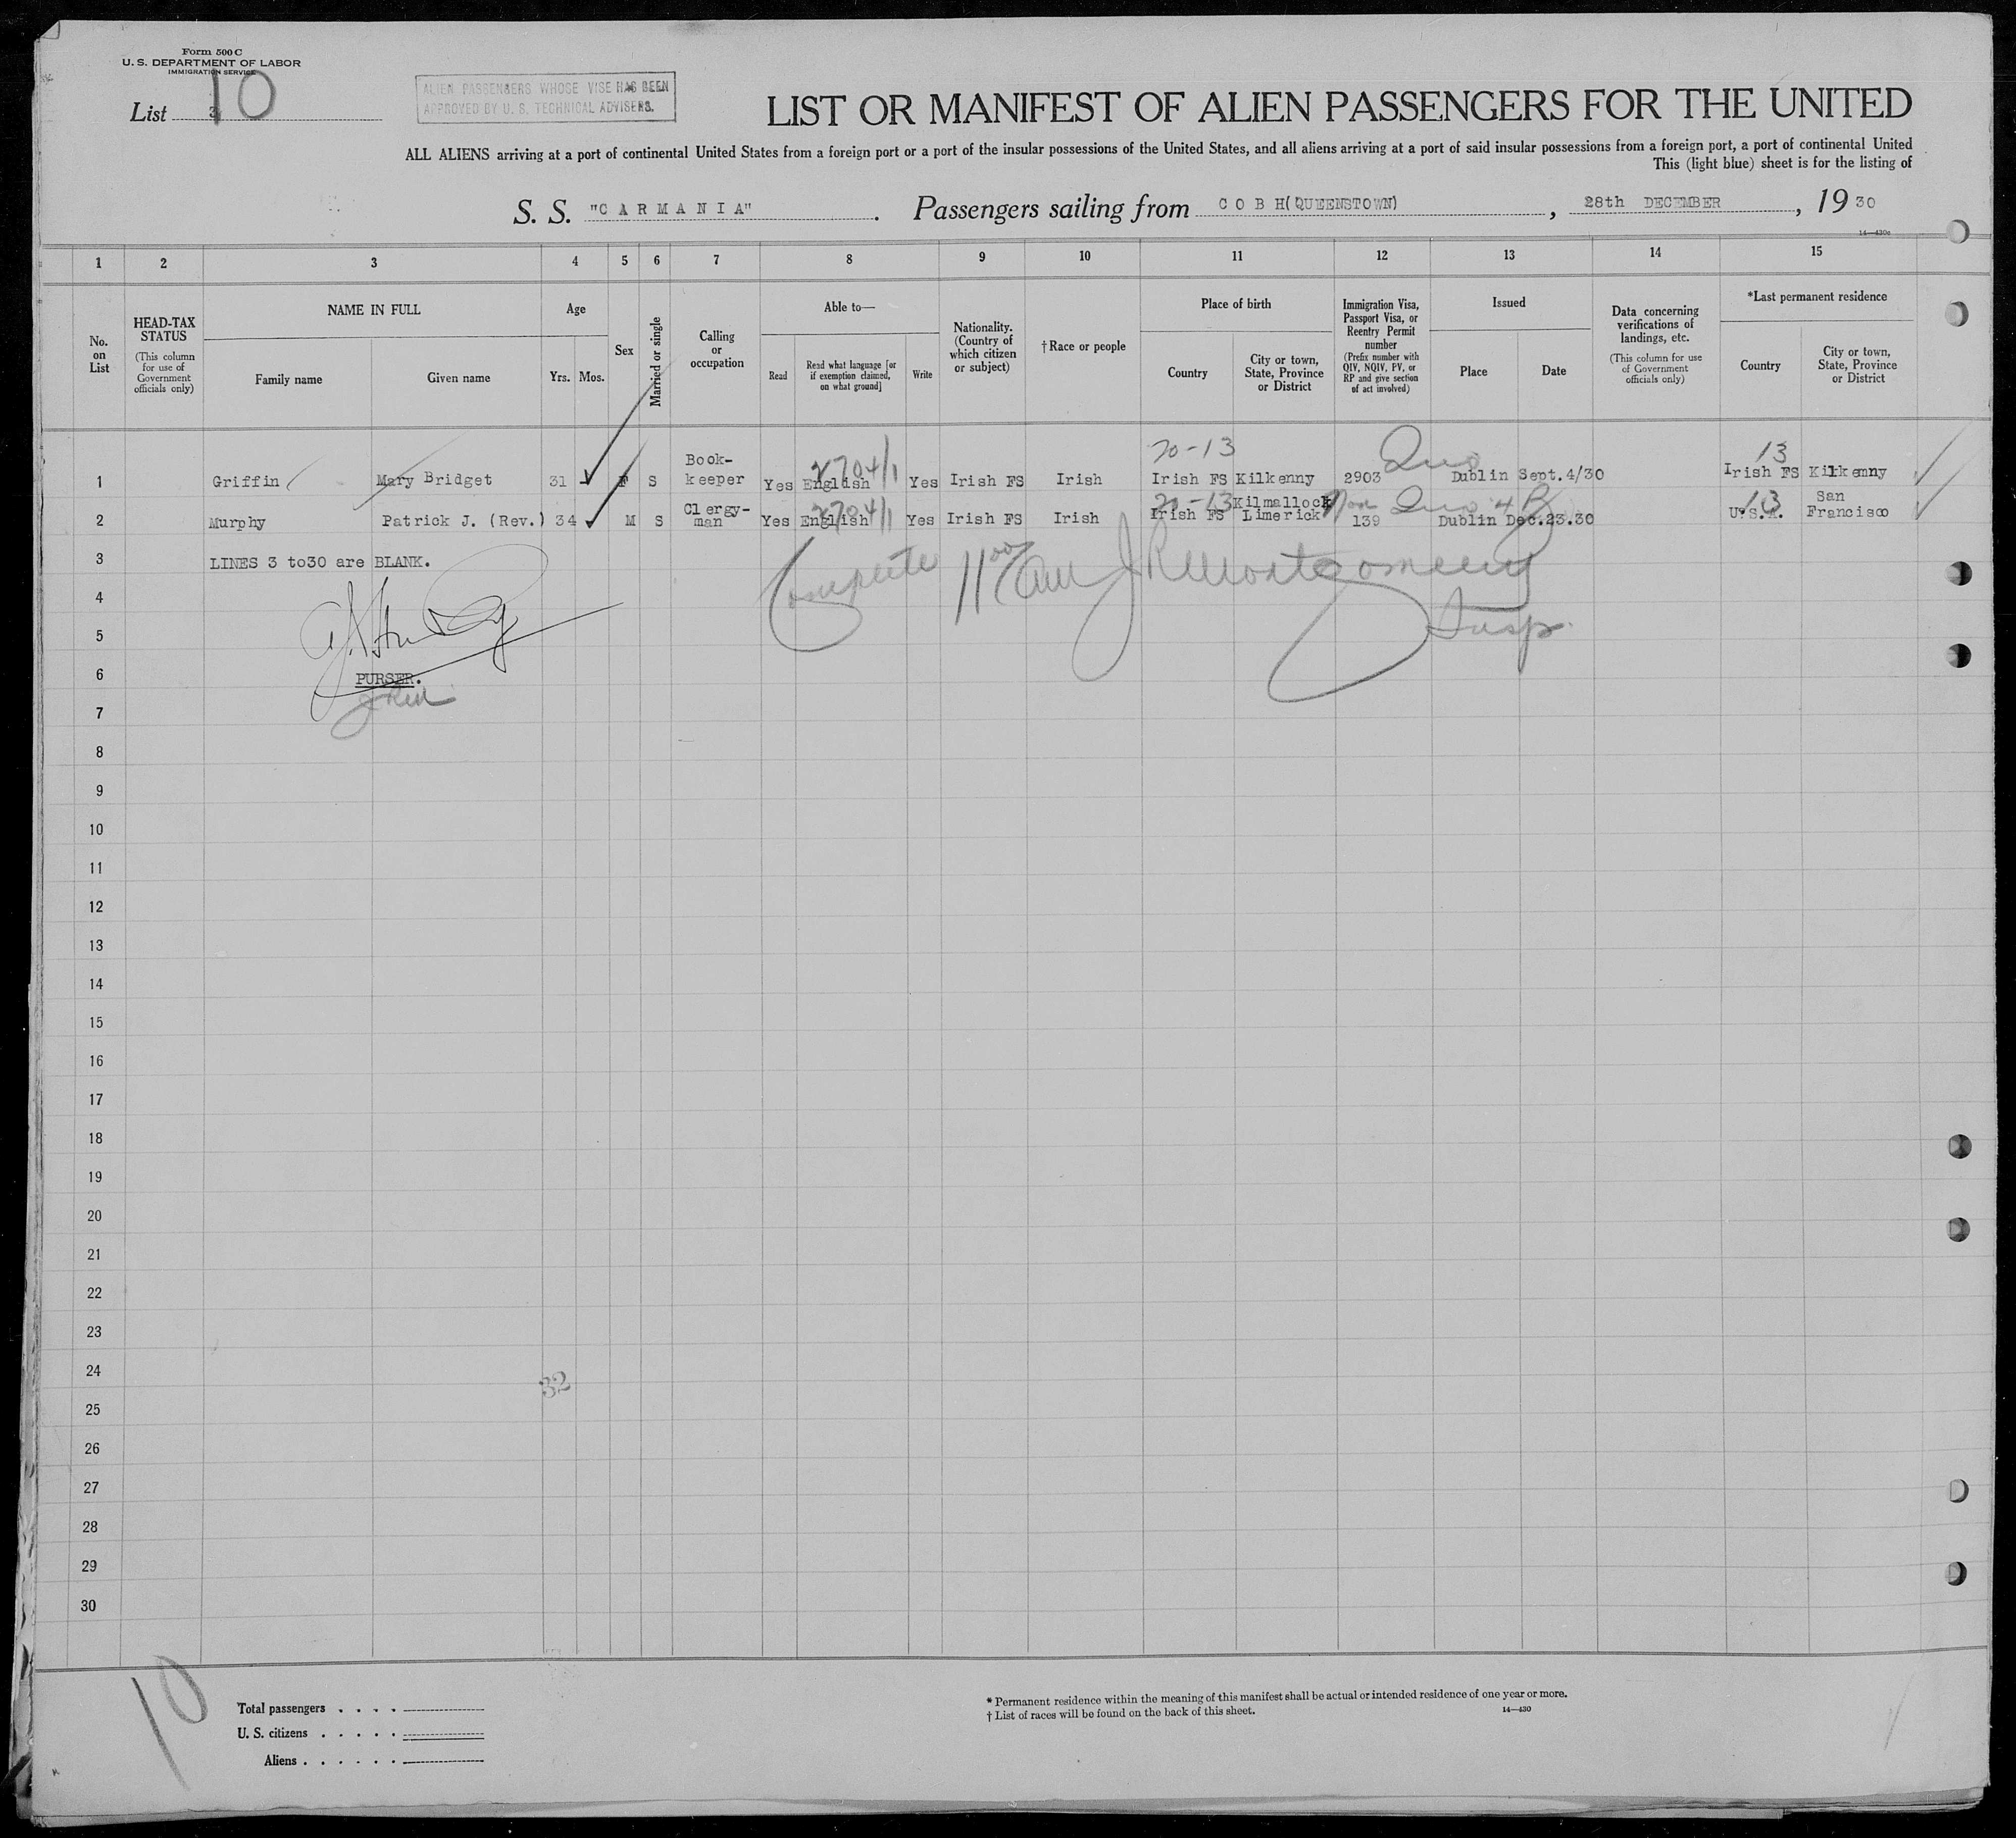 Form 500 C
U. S. DEPARTMENT OF LABOR
IMMIGRATION SERVICE
List 3 10
ALIEN PASSENGERS WHOSE VISE HAS BEEN
APPROVED BY U. S. TECHNICAL ADVISERS.
LIST OR MANIFEST OF ALIEN PASSENGERS FOR THE UNITED
ALL ALIENS arriving at a port of continental United States from a foreign port or a port of the insular possessions of the United States, and all aliens arriving at a port of said insular possessions from a foreign port, a port of continental United
This (light blue) sheet is for the listing of
S. S. "CARMANIA". Passengers sailing from COBH(QUEENSTOWN), 28th DECEMBER, 19 30
14—430c
1 2 3 4 5 6 7 8 9 10 11 12 13 14 15
No. on List
HEAD-TAX STATUS
(This column for use of Government officials only)
NAME IN FULL
Family name
Given name
Age
Yrs. Mos.
Sex
Married or single
Calling or occupation
Able to—
Read
Read what language [or if exemption claimed, on what ground]
Write
Nationality. (Country of which citizen or subject)
† Race or people
Place of birth
Country
City or town, State, Province or District
Immigration Visa, Passport Visa, or Reentry Permit number
(Prefix number with QIV, NQIV, PV, or RP and give section of act involved)
Issued
Place
Date
Data concerning verifications of landings, etc.
(This column for use of Government officials only)
*Last permanent residence
Country
City or town, State, Province or District
20-13 Quo 13
1 Griffin Mary Bridget 31 F S Book-keeper Yes English Yes Irish FS Irish Irish FS Kilkenny 2903 Dublin Sept.4/30 Irish FS Kilkenny
20-13 Non Quo 4 13
2 Murphy Patrick J. (Rev.) 34 M S Clergy-man Yes English Yes Irish FS Irish Irish FS Kilmallock Limerick 139 Dublin Dec.23.30 U.S.A. San Francisco
3 LINES 3 to30 are BLANK.
Complete 11 00 am J R Montgomery
Insp.
4
5
6 PURSER.
7
8
9
10
11
12
13
14
15
16
17
18
19
20
21
22
23
24
32
25
26
27
28
29
30
10
Total passengers . . . .
U. S. citizens . . . . .
Aliens . . . . . .
* Permanent residence within the meaning of this manifest shall be actual or intended residence of one year or more.
† List of races will be found on the back of this sheet.
14—430